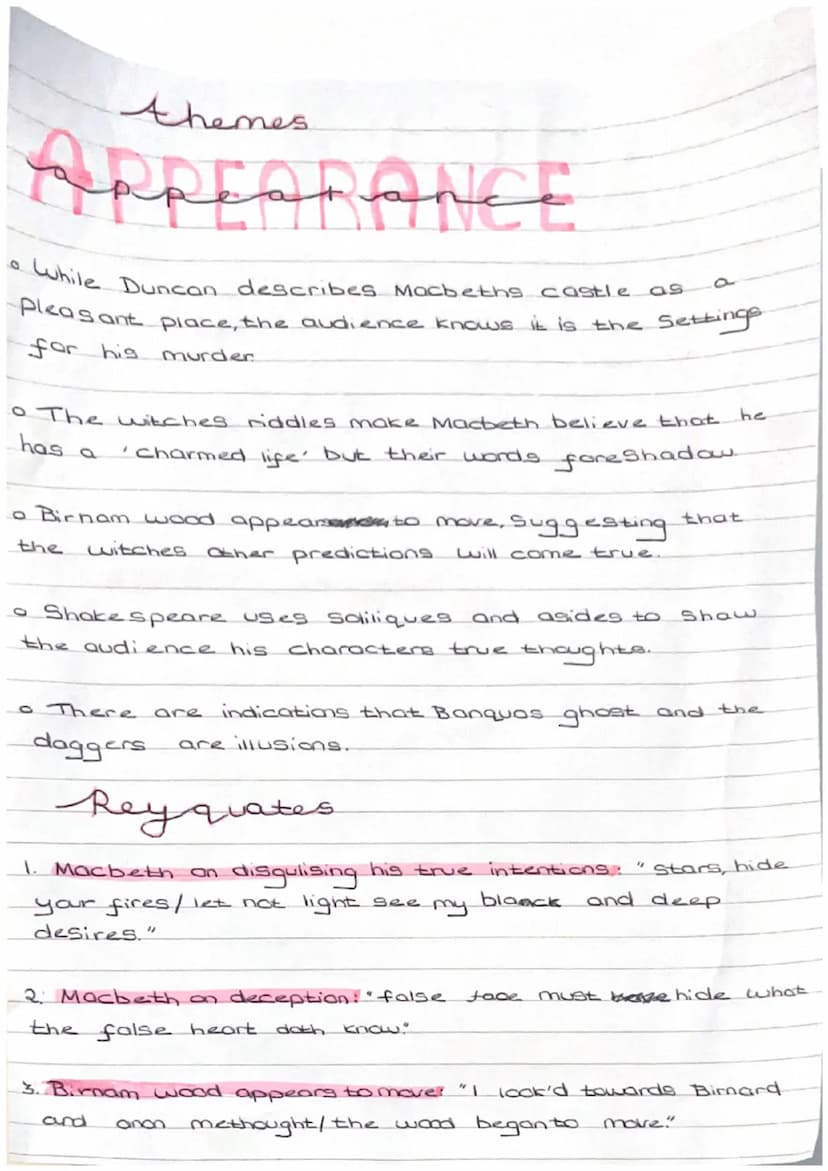 themes
APPEARANCE
appearance
While Duncan describes Macbeths castle as a
pleasant place, the audience knows it is the settings
for his murder
The witches riddles make Macbeth believe that he
has a 'charmed life' but their words foreshadow
Birnam wood appear to move, suggesting that
the witches other predictions will come true.
Shakespeare uses soliliques and asides to show
the audience his characters true thoughts.
There are indications that Banquos ghost and the
daggers are illusions.
Key quotes
1. Macbeth on disgulising his true intentions: "stars, hide
your fires/ let not light see my blanck and deep
desires."
2. Macbeth on deception: "false face must hide what
the false heart doth know."
3. Birnam wood appears to move: "I look'd towards Birnard
and anon methought/ the wood began to move."